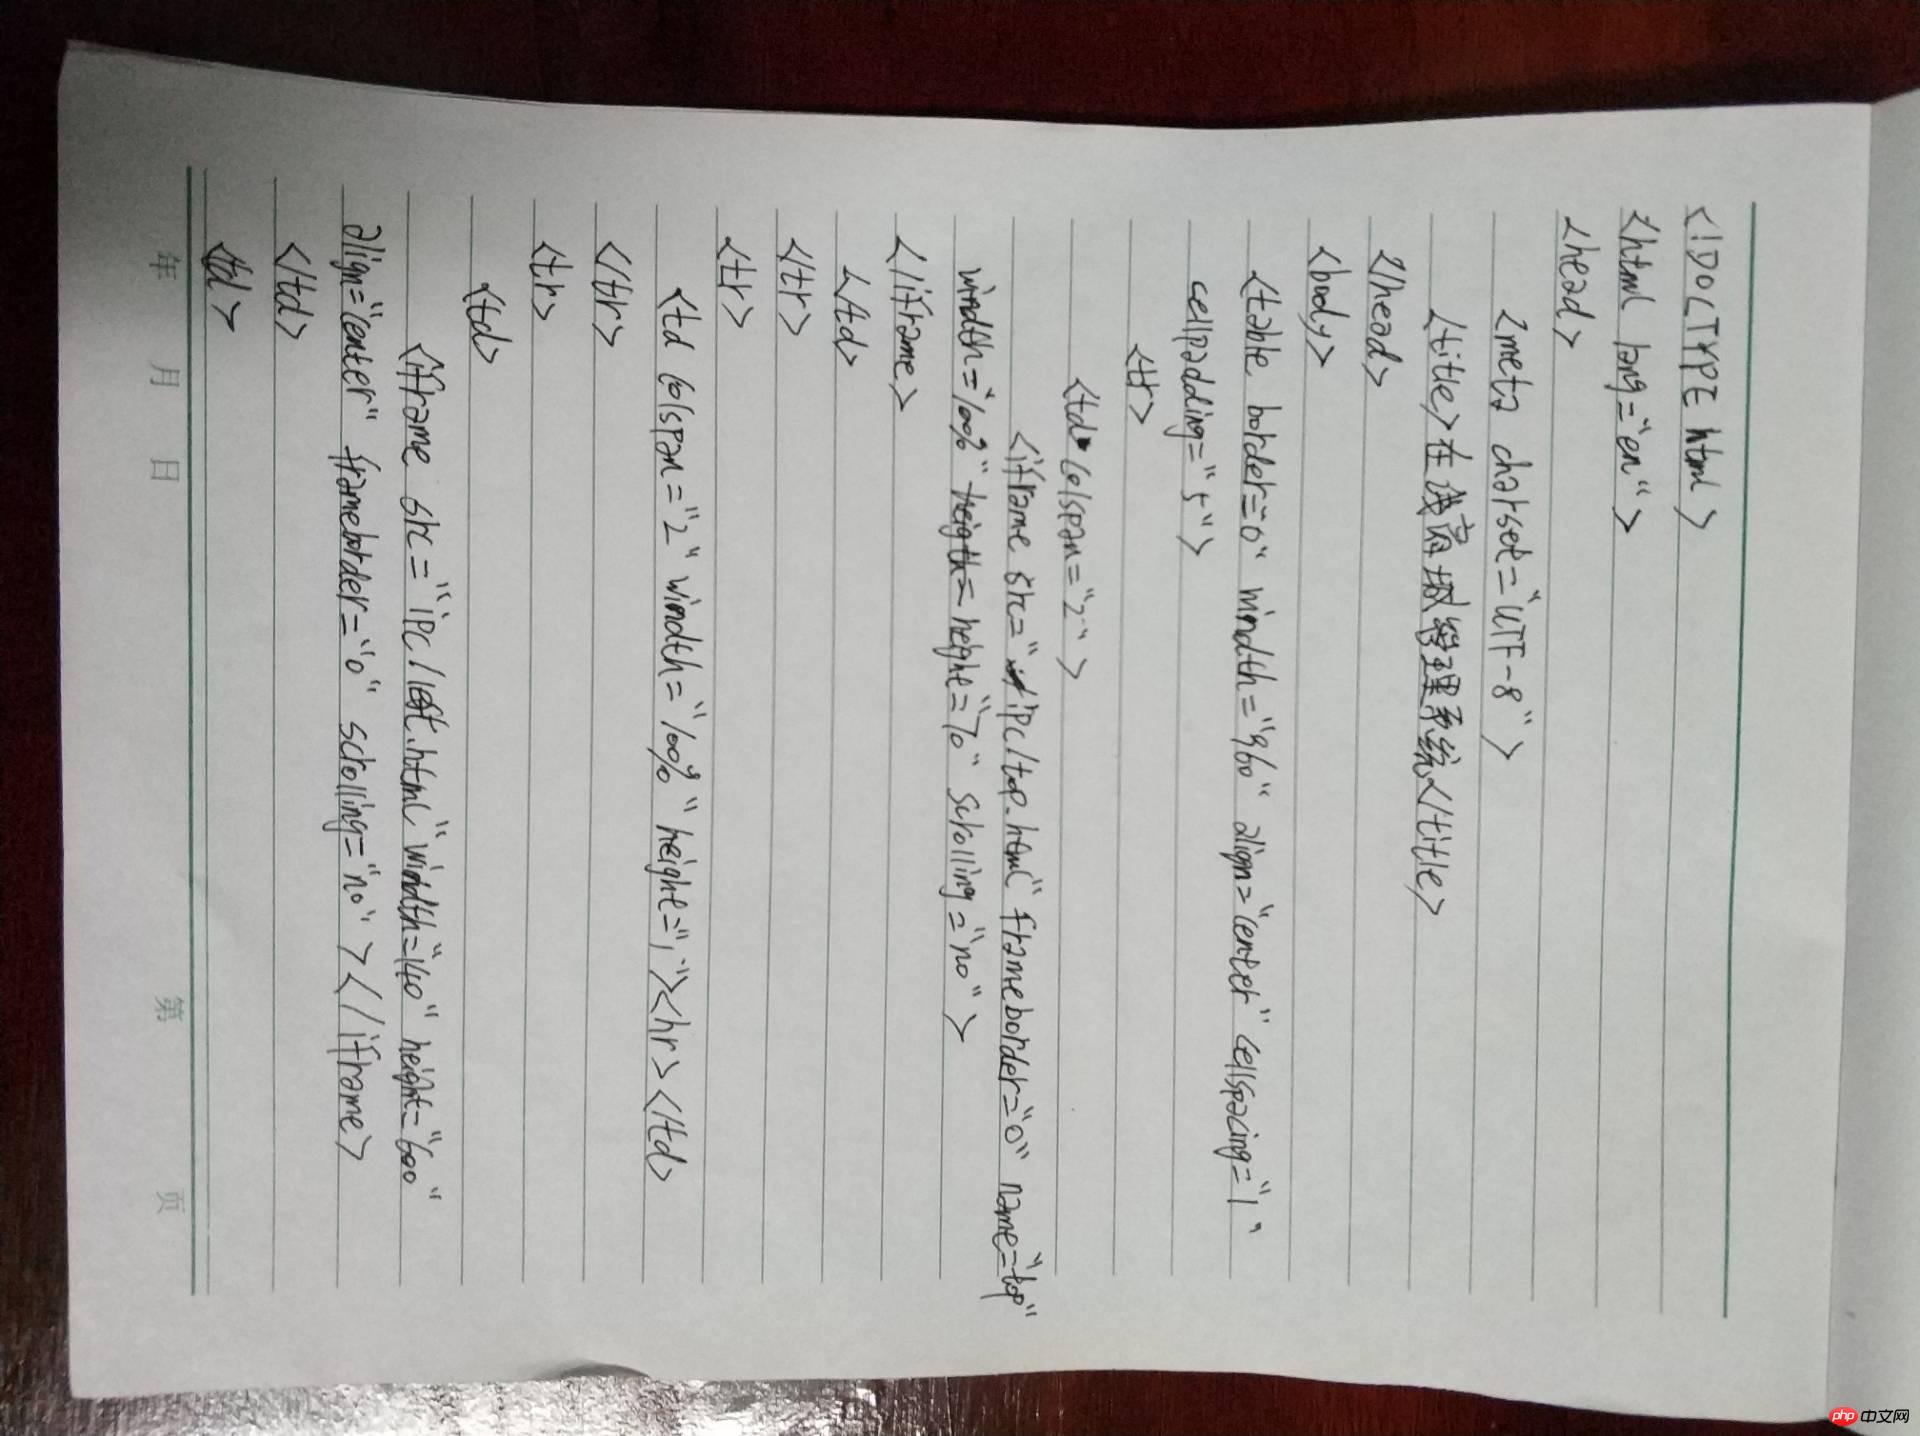 <!DOCTYPE html>
<html lang="en">
<head>
<meta charset="UTF-8">
<title>在线商城管理系统</title>
</head>
<body>
<table border="0" windth="960" align="center" cellspacing="1"
cellpadding="5">
<tr>
<td colspan="2">
<iframe src="ipc/top.html" frameborder="0" name="top"
windth="100%" height="70" scrolling="no">
</iframe>
</td>
</tr>
<tr>
<td colspan="2" windth="100%" height="1"><hr></td>
</tr>
<tr>
<td>
<iframe src="ipc/left.html" windth="140" height="600"
align="center" frameborder="0" scrolling="no"></iframe>
</td>
<td>
年 月 日 第 页
php 中文网